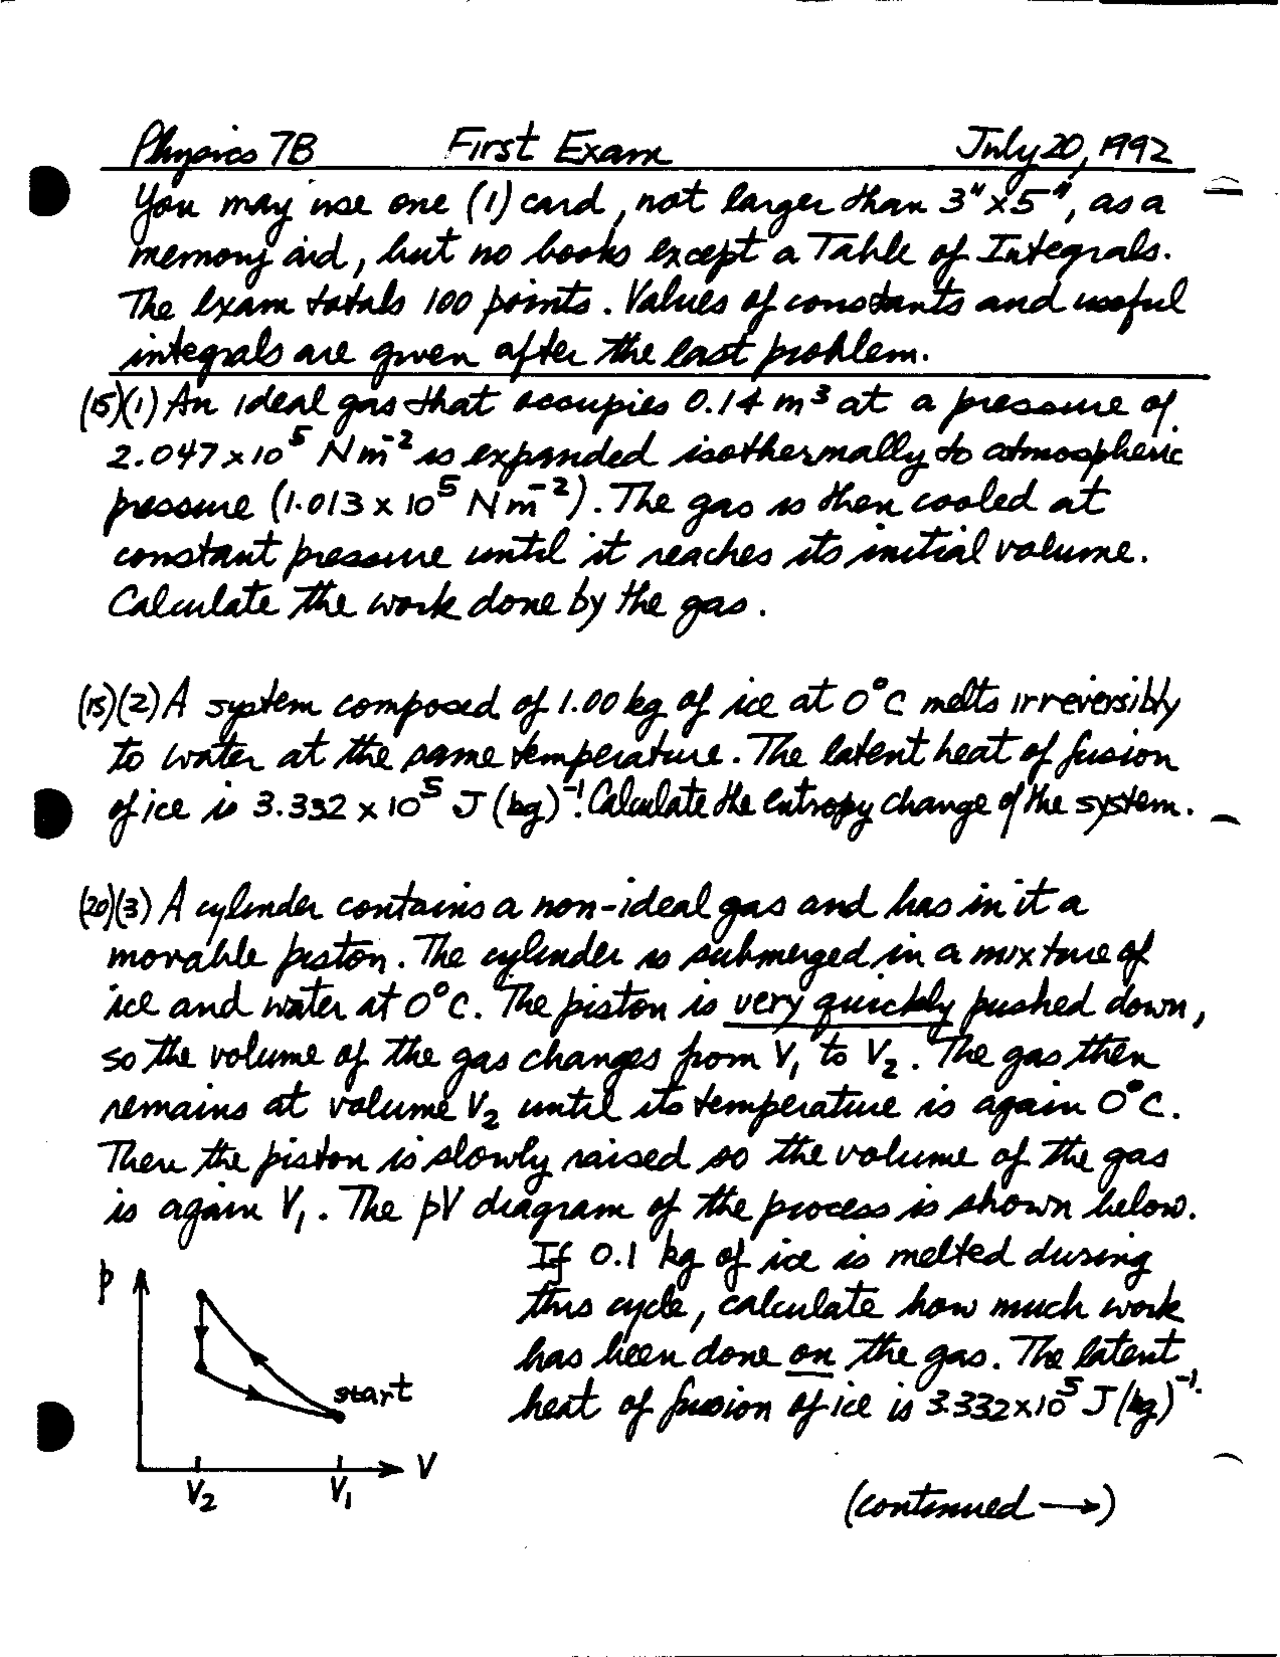 Physics 7B First Exam July 20, 1992
You may use one (1) card, not larger than 3" x 5", as a
memory aid, but no books except a Table of Integrals.
The exam totals 100 points. Values of constants and useful
integrals are given after the last problem.
(15)(1) An ideal gas that occupies 0.14 m³ at a pressure of
2.047 x 10⁵ N m⁻² is expanded isothermally to atmospheric
pressure (1.013 x 10⁵ N m⁻²). The gas is then cooled at
constant pressure until it reaches its initial volume.
Calculate the work done by the gas.
(15)(2) A system composed of 1.00 kg of ice at 0°C melts irreversibly
to water at the same temperature. The latent heat of fusion
of ice is 3.332 x 10⁵ J (kg)⁻¹. Calculate the entropy change of the system.
(20)(3) A cylinder contains a non-ideal gas and has in it a
movable piston. The cylinder is submerged in a mixture of
ice and water at 0°C. The piston is very quickly pushed down,
so the volume of the gas changes from V₁ to V₂. The gas then
remains at volume V₂ until its temperature is again 0°C.
Then the piston is slowly raised so the volume of the gas
is again V₁. The pV diagram of the process is shown below.
If 0.1 kg of ice is melted during
this cycle, calculate how much work
has been done on the gas. The latent
heat of fusion of ice is 3.332 x 10⁵ J (kg)⁻¹.
p
start
V
V₂ V₁
(continued →)